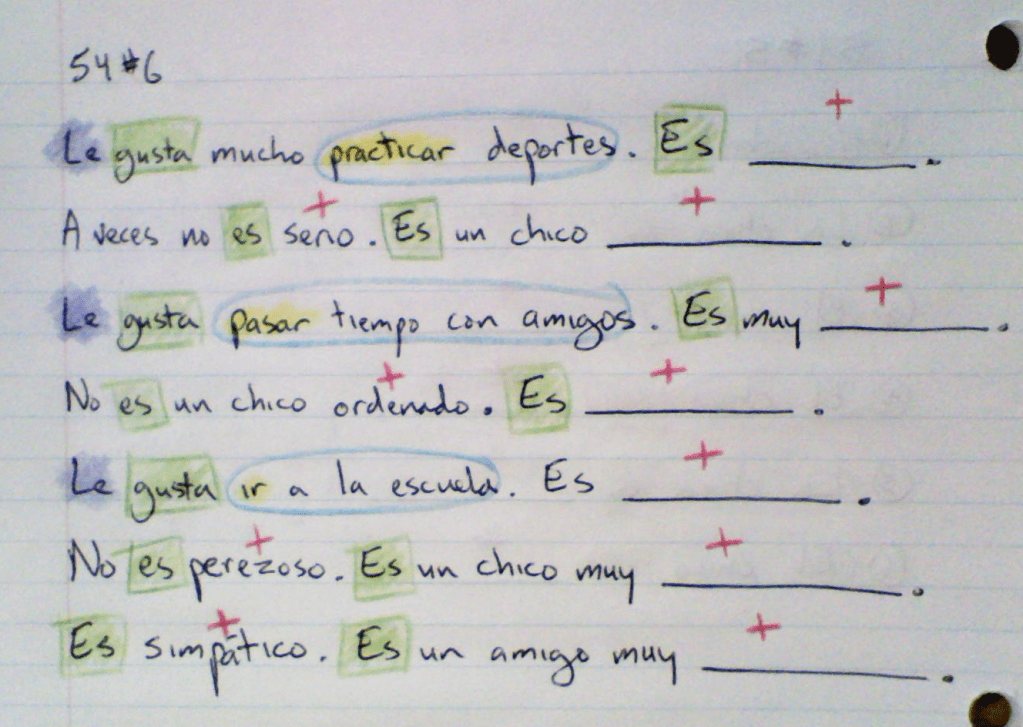 54#6
Le gusta mucho practicar deportes. Es ________.
A veces no es serio. Es un chico ________.
Le gusta pasar tiempo con amigos. Es muy ________.
No es un chico ordenado. Es ________.
Le gusta ir a la escuela. Es ________.
No es perezoso. Es un chico muy ________.
Es simpático. Es un amigo muy ________.